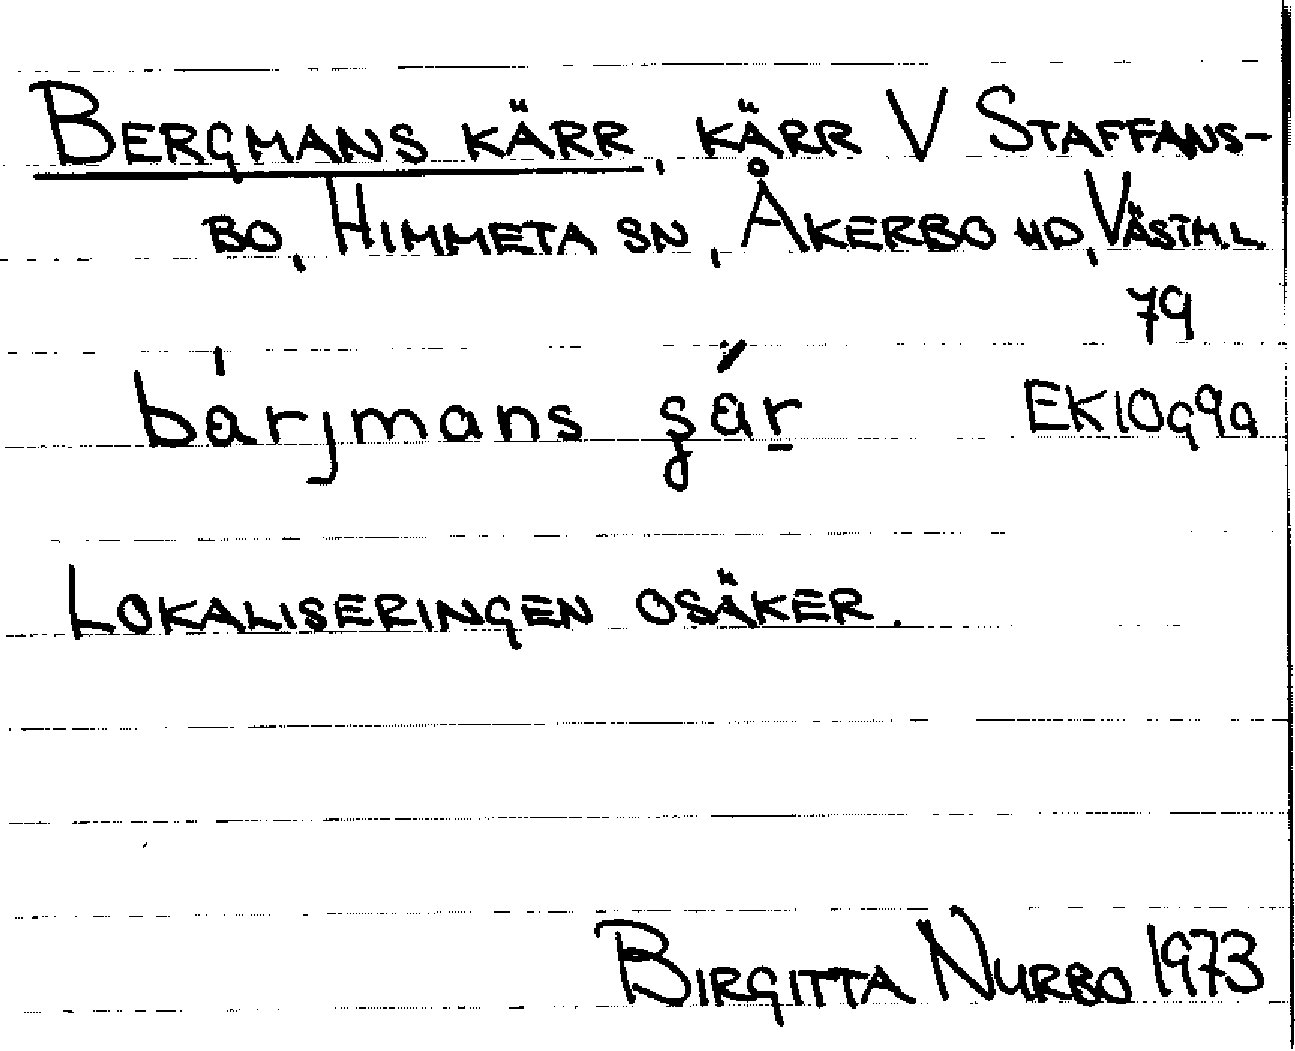 BERGMANS KÄRR, KÄRR V STAFFANS-
BO, HIMMETA SN, ÅKERBO HD, VÄSTML
79
bárjmans şár
EK10g9a
LOKALISERINGEN OSÄKER.
BIRGITTA NURBO 1973